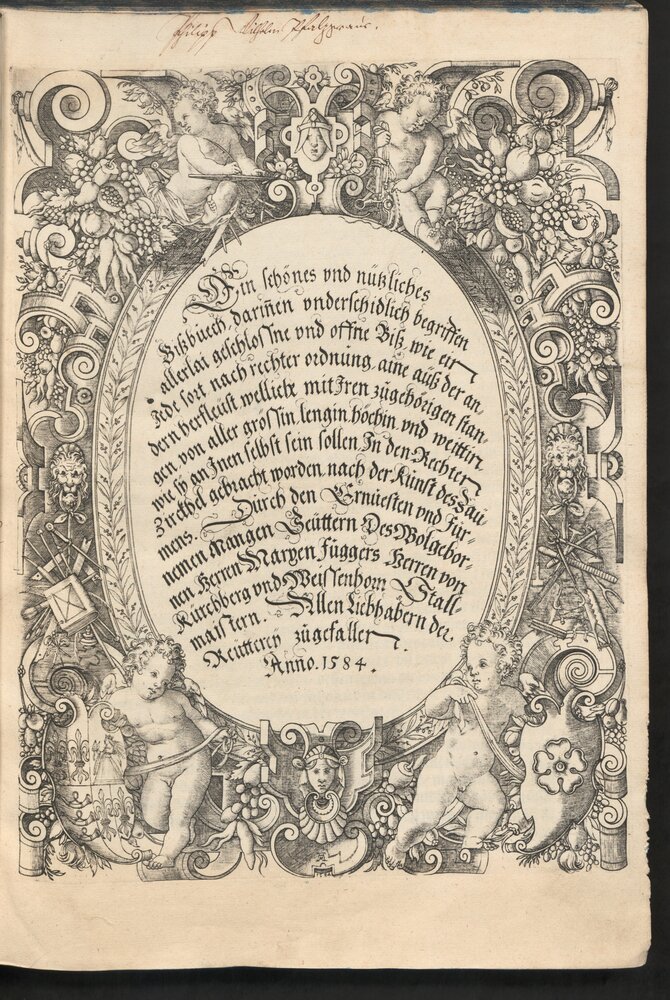 Philipp Wilhelm Pfalzgrave.
Ein schönes vnd nützliches
Bißbuech, darinen vnderschidlich begriffen
allerlai geschlossne vnd offne Biß, wie ein
Jede sort nach rechter ordnung, aine auß der an-
dern herfleüst welliche mit Jren zugehörigen stan-
gen, von aller gröss in, lengin, höchin vnd weittin
wie sy an Jnen selbst sein sollen Jn den Rechten
Zirckhel gebracht worden nach der Kunst des Zaü-
mens. Durch den Ernuesten vnd Für-
nemen Mangen Seüttern Des Wolgebor-
nen Herren Marxen Függers Herren von
Kürchberg vnd Weissenhorn Stall-
maistern. Allen Liebhabern der
Reütterey zügefallen.
Anno. 1584.